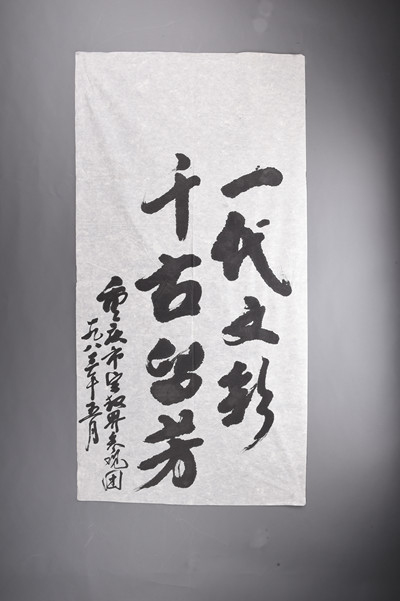 一代文彰
千古留芳
重庆市宗教界参观团
一九八三年五月